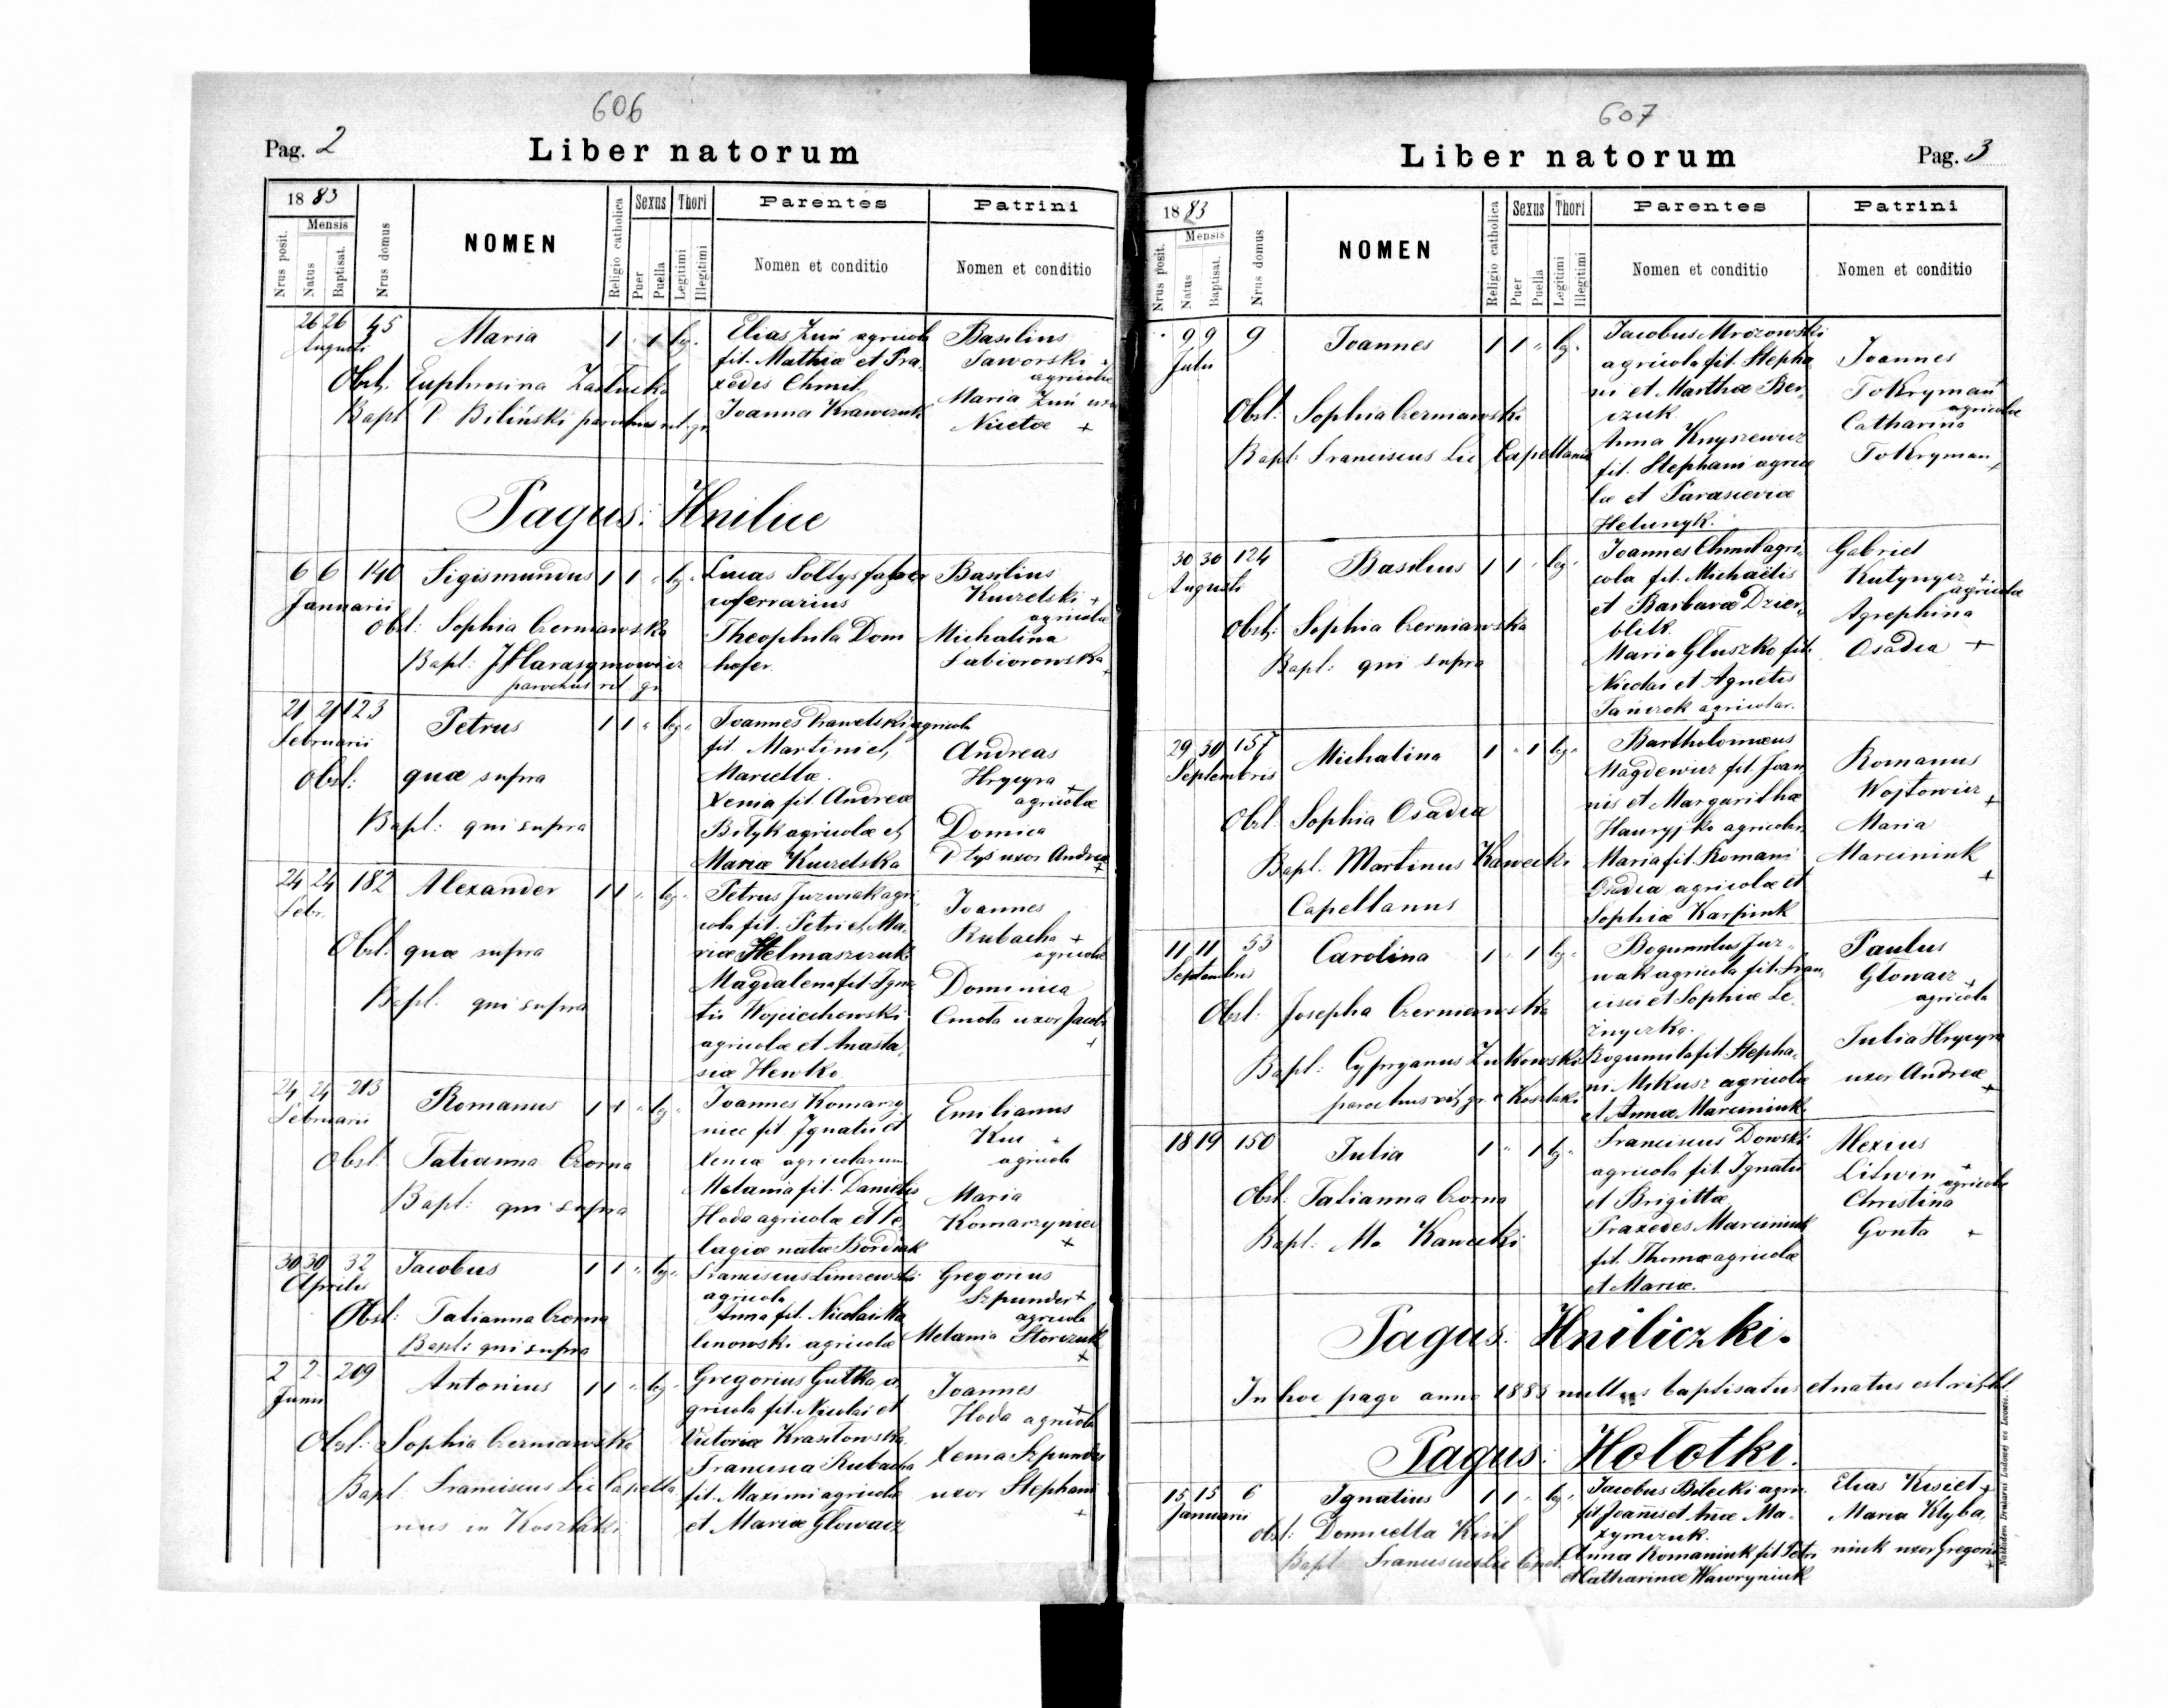 606
Pag. 2
Liber natorum
18 83
Mensis
Nrus posit.
Natus
Baptisat.
Nrus domus
NOMEN
Religio catholica
Sexus
Puer
Puella
Thori
Legitimi
Illegitimi
Parentes
Nomen et conditio
Patrini
Nomen et conditio
26 26 45 Maria 1 " 1 leg.
Augusti
Obst. Euphrosina
Bapt P Biliński parochus rit. gr.
Elias Zuń agricola
fil. Mathiæ et Pra-
xedis Chmil.
Joanna Krawczuk
Basilius
Jaworski +
agricolæ
Maria Zuń uxor
Nicetæ +
Pagus: Hnilice
6 6 140 Sigismundus 1 1 " leg.
Januarii
Obst: Sophia Czerniawska
Bapt: J Harasymowicz
parochus rit. gr.
Lucas Soltys faber
ferrarius
Theophila Dom
hofer
Basilius
Kuczelski +
agricolæ
Michalina
+
21 21 123 Petrus 1 1 " leg.
Februarii
Obst: quæ supra
Bapt: qui supra
Joannes agricola
fil. Martini et
Marcellæ.
Xenia fil. Andreæ
Bityk agricolæ et
Mariæ Kuczelska
Andreas
Hrycyra +
agricolæ
Domica
uxor Andreæ
+
24 24 182 Alexander 1 1 " leg.
Febr.
Obst. quæ supra
Bapt. qui supra
Petrus Juzwiak agri-
cola fil. Petri et Ma-
riæ Stelmaszczuk
Magdalena fil. Igna
tii Wojciechowski
agricolæ et Anasta-
siæ Hewko
Joannes
Rubacha +
agricolæ
Dominica
Cmota uxor Jacobi
+
24 24 213 Romanus 1 1 " leg.
Februarii
Obst. Tatianna Czorna
Bapt: qui supra
Joannes Komarzy
niec fil. Ignatii et
Xeniæ agricolarum
Melania fil. Danielis
Hoda agricolæ et Pe-
lagiæ natæ Bordiak
Emilianus
Kuc +
agricola
Maria
Komarzyniec
+
30 30 32 Jacobus 1 1 " leg.
Aprilis
Obst: Tatianna Czorna
Bapt: qui supra
Franciscus
agricola
Anna fil. Nicolai Ma
linowski agricolæ
Gregorius
Szpunder +
agricola
Melania Storczuk
+
2 2 209 Antonius 1 1 " leg.
Junii
Obst: Sophia Czerniawska
Bapt Franciscus Lic Capella
nus in Koszlaki
Gregorius Gutka a-
gricola fil. Nicolai et
Victoriæ Krasitowska
Francisca Rubacha
fil. Maximi agricolæ
et Mariæ Głowacz
Joannes
Hoda agricola +
Xenia Szpunder
uxor Stephani
+
607
Liber natorum
Pag. 3
18 83
Mensis
Nrus posit.
Natus
Baptisat.
Nrus domus
NOMEN
Religio catholica
Sexus
Puer
Puella
Thori
Legitimi
Illegitimi
Parentes
Nomen et conditio
Patrini
Nomen et conditio
9 9 9 Joannes 1 1 " leg.
Julii
Obst: Sophia Czerniawska
Bapt: Franciscus Lic Capellanus
Jacobus Mrozowski
agricola fil. Stepha
ni et Marthæ Ber-
czuk
Anna Knyszewicz
fil. Stephani agrico
læ et Parasceviæ
Helunyk.
Joannes
Tokryman +
agricolæ
Catharina
Tokryman +
30 30 124 Basilius 1 1 " leg.
Augusti
Obst: Sophia Czerniawska
Bapt: qui supra
Joannes Chmil agri-
cola fil. Michaëlis
et Barbaræ Dzier-
blik
Maria Gluszko fil.
Nicolai et Agnetis
Tańczok agricolar.
Gabriel
Kutynycz +
agricolæ
Agrephina
Osadca +
29 30 157 Michalina 1 " 1 leg.
Septembris
Obst: Sophia Osadca
Bapt: Martinus Kawecki
Capellanus
Bartholomæus
Magdewicz fil. Joan
nis et Margarithæ
Hauryjko agricolar.
Maria fil. Romani
Osadca agricolæ et
Sophiæ Karpiuk
Romanus
Wojtowicz +
Maria
Marciniuk
+
11 11 53 Carolina 1 " 1 leg.
Septembris
Obst: Josepha Czerniawska
Bapt: Cypryanus Zukowski
parochus rit. gr. e Koszlaki
Bogumilus Juz-
wak agricola fil. Fran-
cisci et Sophiæ Le-
żnyczko.
Bogumila fil. Stepha-
ni Mikusz agricolæ
et Annæ Marciniuk
Paulus
Głowacz +
agricola
Julia Hrycyra
uxor Andreæ
+
18 19 150 Julia 1 " 1 leg.
Obst. Tatianna Czorna
Bapt: M. Kawecki
Franciscus Dowski
agricola fil. Ignatii
et Brigittæ
Praxedes Marciniuk
fil. Thomæ agricolæ
et Mariæ.
Alexius
Litwin +
agricolæ
Christina
Gonta +
Pagus: Hniliczki.
In hoc pago anno 1883 nullus baptisatus et natus est rit. lat.
Pagus: Hołotki.
15 15 6 Ignatius 1 1 " leg.
Januarii
Obst: Domicella Kisil
Bapt Franciscus Lic Capel.
Jacobus Bilecki agri-
fil Joañis et Añæ Ma-
xymczuk.
Anna Romaniuk fil. Petri
et Catharinæ Wawryniuk
Elias Kisiel +
Maria Klyba,
niuk uxor Gregorii
+